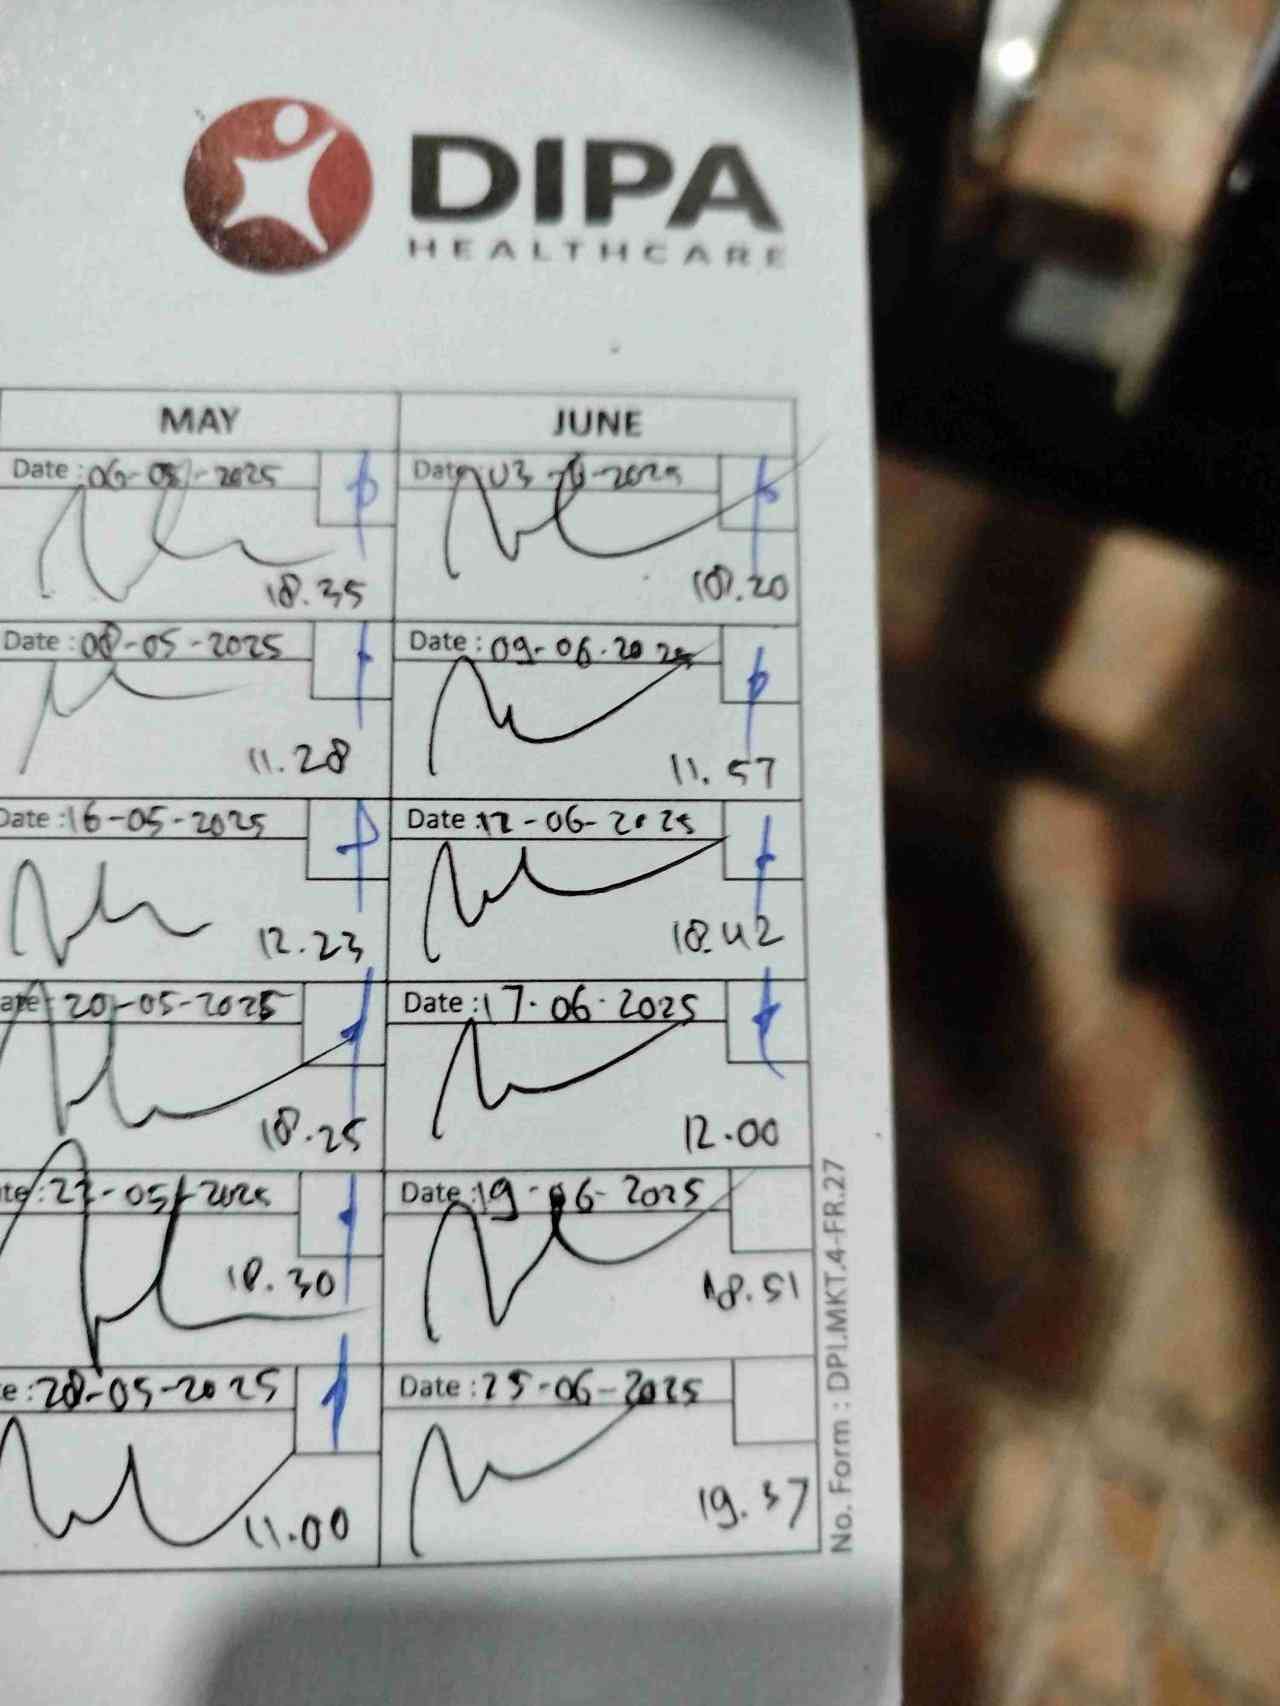 DIPA
HEALTHCARE
MAY JUNE
Date : 06-05-2025
18.35
03-06-2025
18.20
Date : 08-05-2025
11.28
Date : 09-06.2025
11.57
Date : 16-05-2025
12.23
Date : 12-06-2025
18.42
20-05-2025
18.25
Date : 17.06.2025
12.00
-05-2025
18.30
Date : 19-06-2025
18.51
28-05-2025
11.00
Date : 25-06-2025
19.37
No. Form : DPI.MKT.4-FR.27